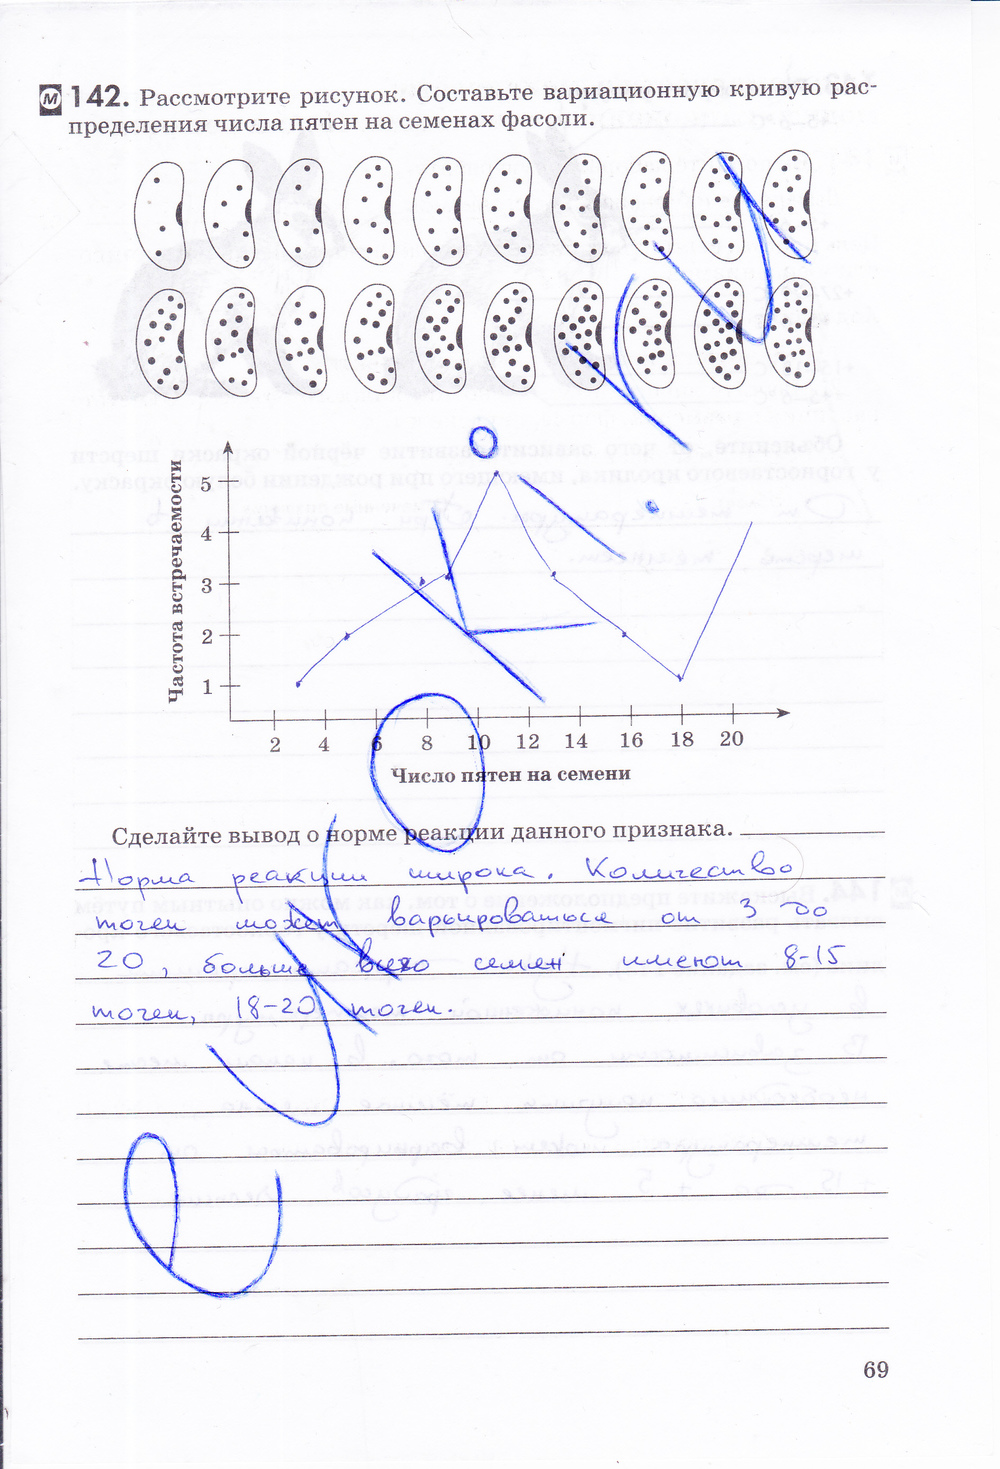 М 142. Рассмотрите рисунок. Составьте вариационную кривую рас-
пределения числа пятен на семенах фасоли.
Частота встречаемости
5
4
3
2
1
2 4 6 8 10 12 14 16 18 20
Число пятен на семени
Сделайте вывод о норме реакции данного признака.
Норма реакции широка. Количество
точек может варьироваться от 3 до
20, больше всего семян имеют 8-15
точек, 18-20 точек.
69